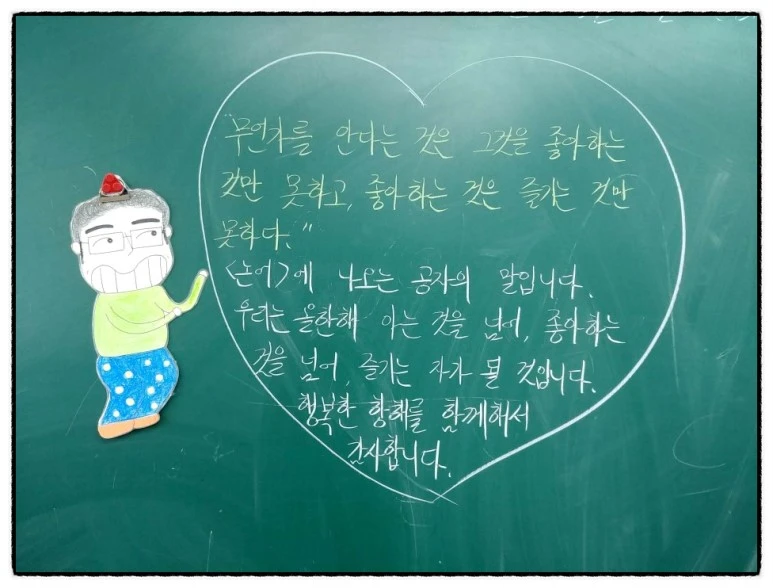 "무언가를 안다는 것은 그것을 좋아하는
것만 못하고, 좋아하는 것은 즐기는 것만
못하다."
<논어>에 나오는 공자의 말입니다.
우리는 올한해 아는 것을 넘어, 좋아하는
것을 넘어, 즐기는 자가 될 것입니다.
행복한 항해를 함께해서
감사합니다.